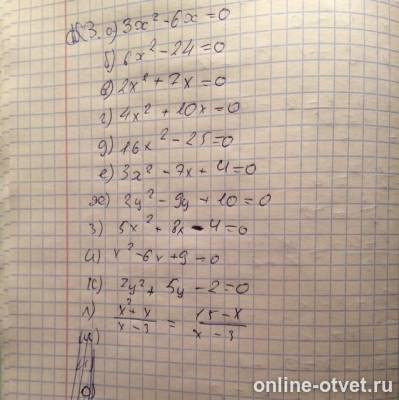 №3. а) 3x² - 6x = 0
б) 6x² - 24 = 0
в) 2x² + 7x = 0
г) 4x² + 10x = 0
д) 16x² - 25 = 0
е) 3x² - 7x + 4 = 0
ж) 2y² - 9y + 10 = 0
з) 5x² + 8x - 4 = 0
и) x² - 6x + 9 = 0
к) 7y² + 5y - 2 = 0
л) x² + x / x - 3 = 15 - x / x - 3
online-otvet.ru